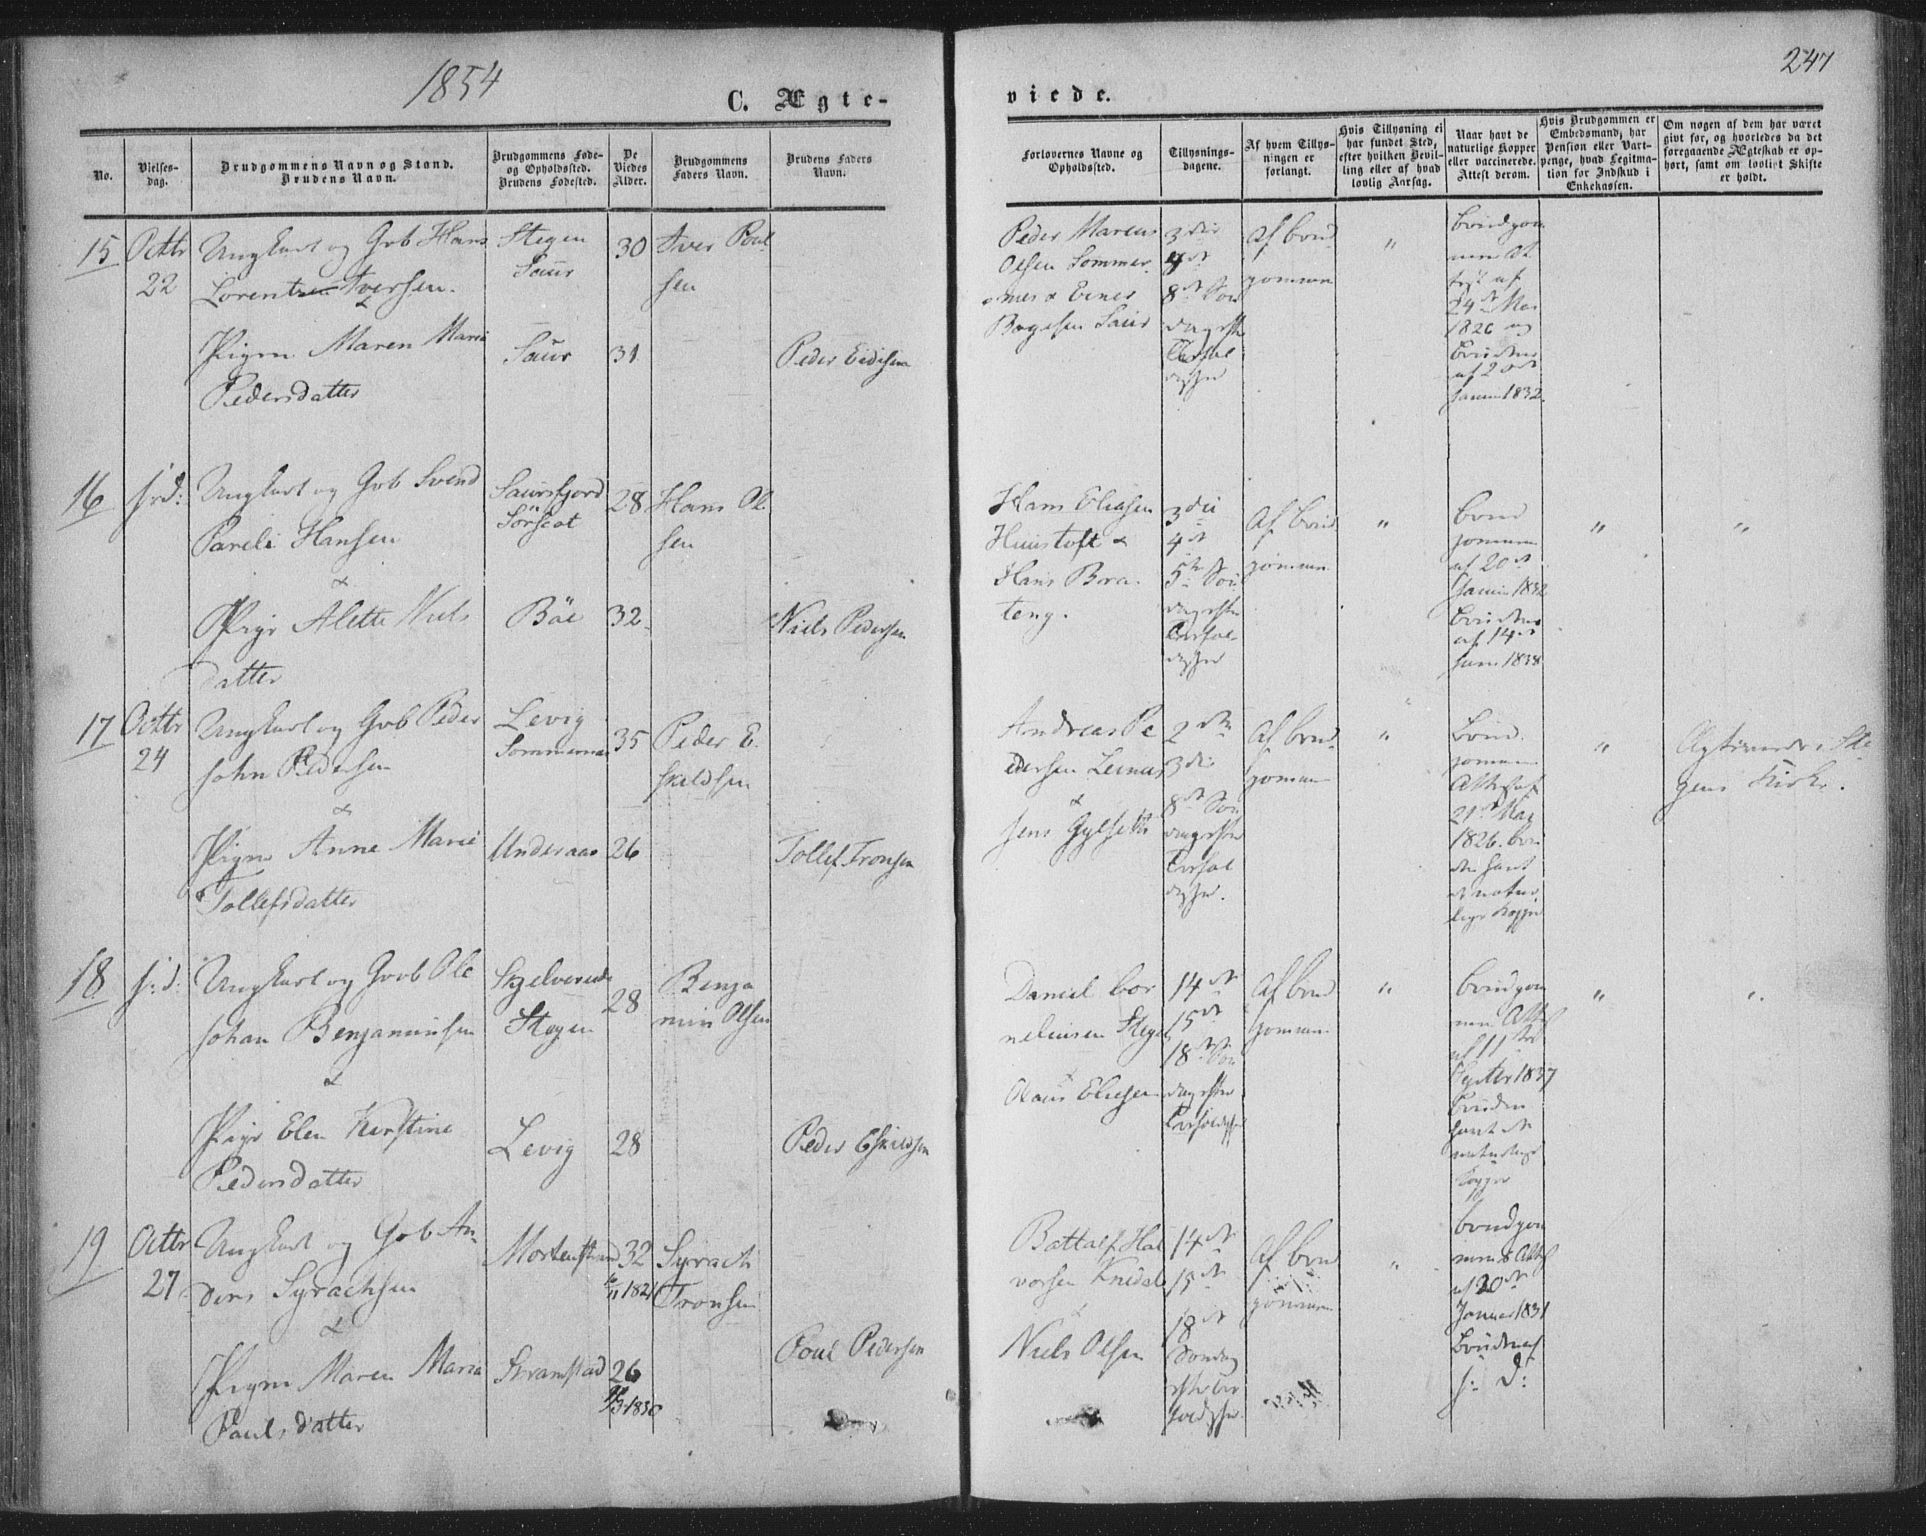 1854
247
C. Ægte-
viede.
No.
Vielses-
dag.
Brudgommens Navn og Stand.
Brudens Navn.
Brudgommens Føde-
og Opholdssted.
Brudens Fødested.
De
Viedes
Alder.
Brudgommens
Faders Navn.
Brudens Faders
Navn.
Forlovernes Navne og
Opholdssted.
Tillysnings-
dagene.
Af hvem Tillys-
ningen er
forlangt.
Hvis Tillysning ei
har fundet Sted,
efter hvilken Bevil-
ling eller af hvad
lovlig Aarsag.
Naar havt de
naturlige Kopper
eller vaccinerede.
Attest derom.
Hvis Brudgommen er
Embedsmand, har
Pension eller Vart-
penge, hvad Legitima-
tion for Indskud i
Enkekassen.
Om nogen af dem har været
givt før, og hvorledes da det
foregaaende Ægteskab er op-
hørt, samt om lovligt Skifte
er holdt.
15
Octbr
22
Ungkarl og Gvb Hans
Lorentzen Iversen.
&
Pigen Maren Maria
Pedersdatter
Stegen
Saur
Saur
30
31
Iver Poul
sen
Peder Eidisen
Peder Marcus
Olsen Sommer
Bagesen Saur
3die
4de
8de Søn
dag efter
af brud
gommen
"
brudgom
men At
test af
24de Mai
1826 og
Brudens
af 20de
Januar 1832.
16
s: d:
Ungkarl og Gvb Svend
Pareli Hansen
&
Pige Alette Niels
datter
Saursfjord
Sörscot
Böe
28
32
Hans Ol
sen
Niels Pedersen
Hans Eliasen
Huustoft &
Hans Bora
teng.
3die
4de
5te Søn
dag efter
af brud
gommen
"
brud
gommen
af 20de
Januar 1832
Brudens
af 14de
Juni 1838
"
"
17
Octbr
24
Ungkarl og Gvb Peder
Johan Pedersen
&
Pigen Anne Marie
Tollefsdatter
Levig
Underaas
35
26
Peder E.
skildsen
Tollef Tronsen
Andreas Pe
dersen Leinæs
&
Jens Gylseth
2den
3die
8de Søn
dag efter
af brud
gommen
"
brud
gommens
Attest af
21de Mai
1826. bru
den havt
de natur
lige Kopper
"
Ægteviede i Ste
gens Kirke.
18
s: d:
Ungkarl og Gvb Ole
Johan Benjaminsen
&
Pige Elen Kerstine
Pedersdatter
Stegen
Levig
28
28
Benja
min Olsen
Peder Eskildsen
Daniel Cor
neliusen Stegen
&
Olaus Eliesen
14de
15de
18de Søn
dag efter
af brud
gommen
"
brudgom
men Attest
af 11te
Septbr 1837
Bruden
havt de
naturlige
Kopper
"
"
19
Octbr
27
Ungkarl og Gvb An
ders Syrachsen
&
Pigen Maren Maria
Paulsdatter
Mortenstrand
Skramstad
32
1821
26
1830
Syrach
Tronsen
Poul Pedersen
Battolf Hal
vorsen Knidal
&
Niels Olsen
14de
15de
18de
Søndag
af brud
gommen
"
brudgom
mens Attest
af 20de
Januar 1831
Brudens af
s: d: